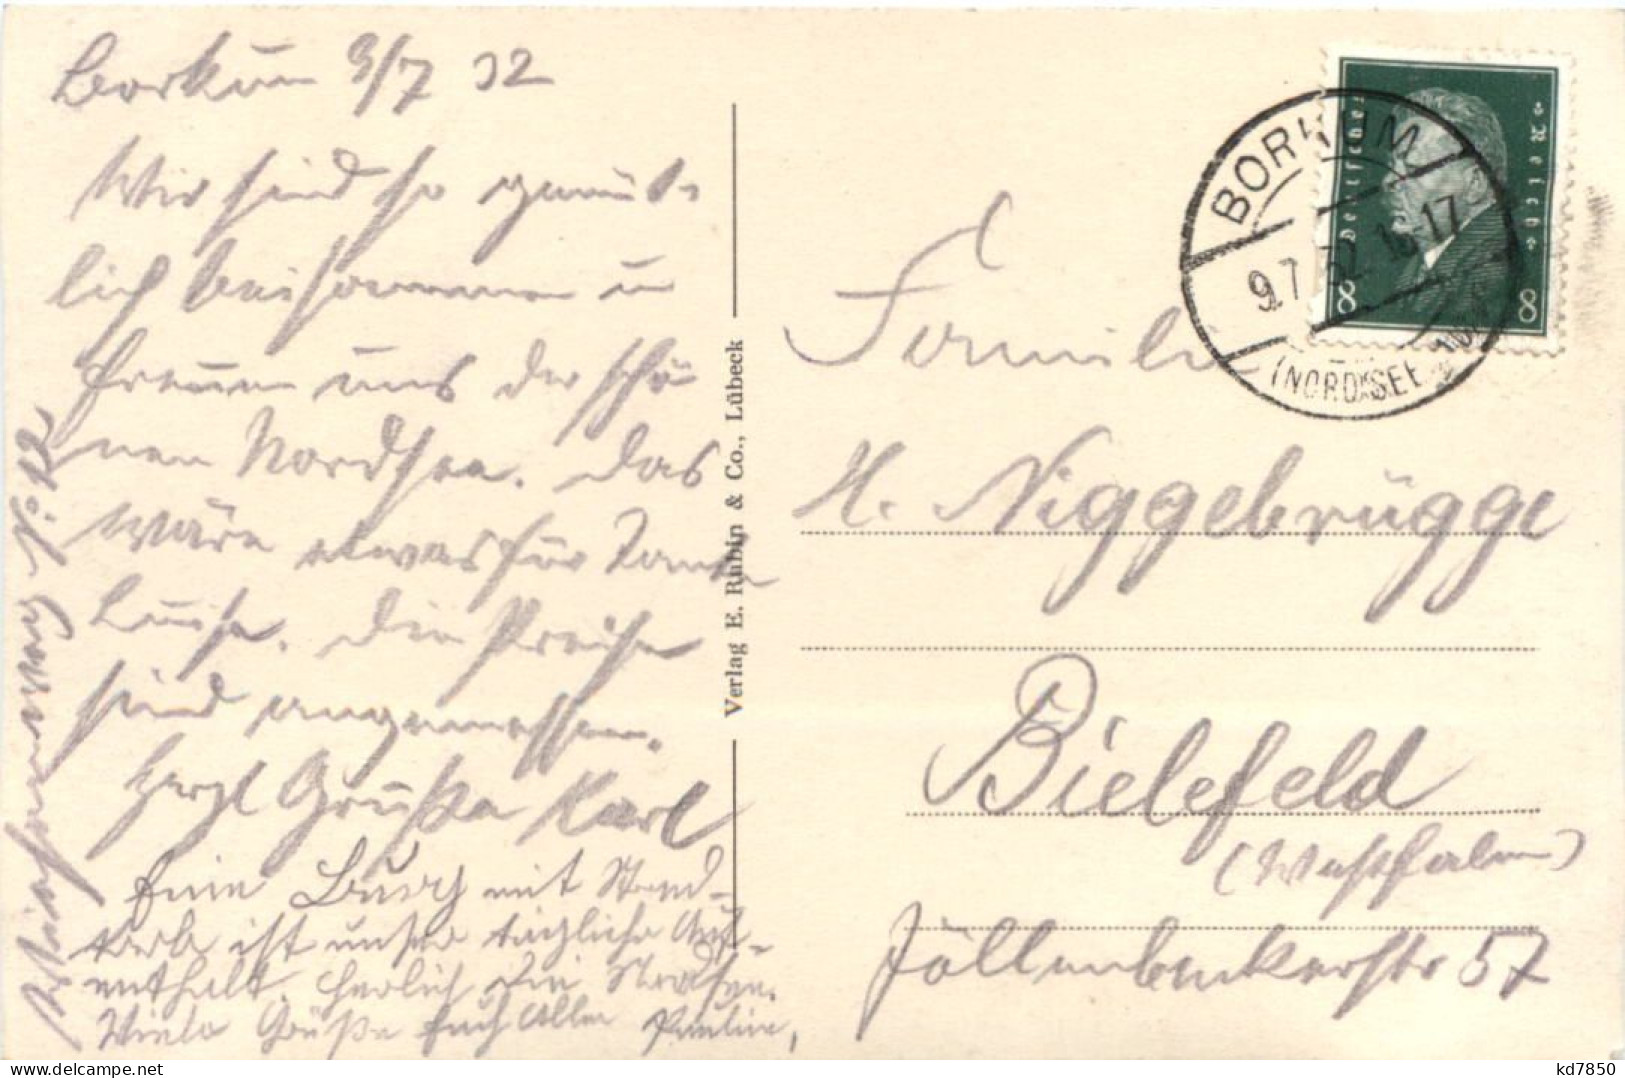 Borkum 9/7 32
Wir sind so gemüt-
lich beisammen u
freuen uns der schö
nen Nordsee. Das
wäre etwas für Tante
Luise. Die Preise
sind angemessen.
Herzl Grüße Karl
Eine Burg mit Strand-
korb ist unser täglicher Auf-
enthalt. Herrlich die Nordsee.
Viele Grüße Euch Allen Pauline,
Verlag E. Rubin & Co., Lübeck
Deutsches Reich
8 8
BORKUM
9.7.32.16-17
(NORDSEE)
Familie
H. Niggebrügge
Bielefeld
(Westfalen)
Jöllenbeckerstr 57
kd7850